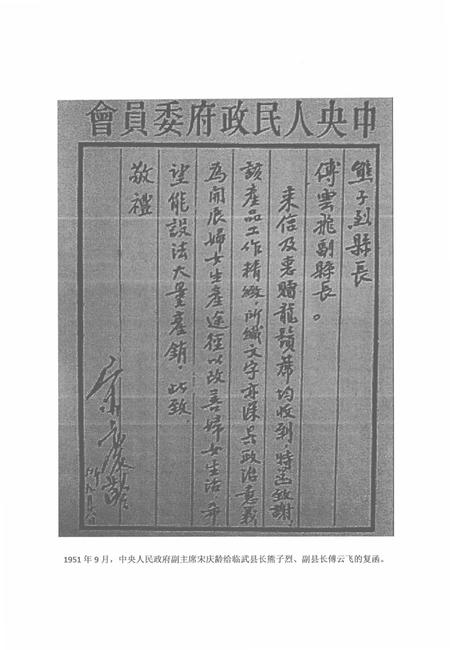 中央人民政府委員會
熊子烈縣長
傅雲飛副縣長。
来信及惠贈龍鬚蓆均收到，特函致謝，
該產品工作精緻，所織文字亦深具政治意義
為開展婦女生產途徑以改善婦女生活，希
望能設法大量產銷，此致，
敬禮
宋慶齡
1951 年 9 月，中央人民政府副主席宋庆龄给临武县长熊子烈、副县长傅云飞的复函。